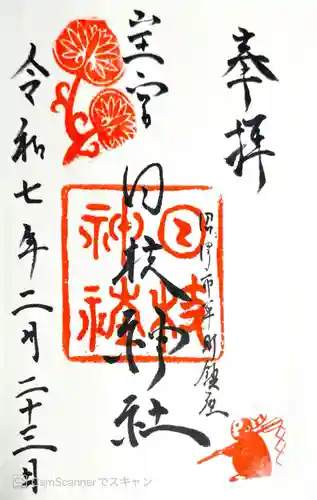 奉拝
沼津市平町鎮座
山王宮
日枝神社
日枝
神社
令和七年二月二十三日
CamScannerでスキャン